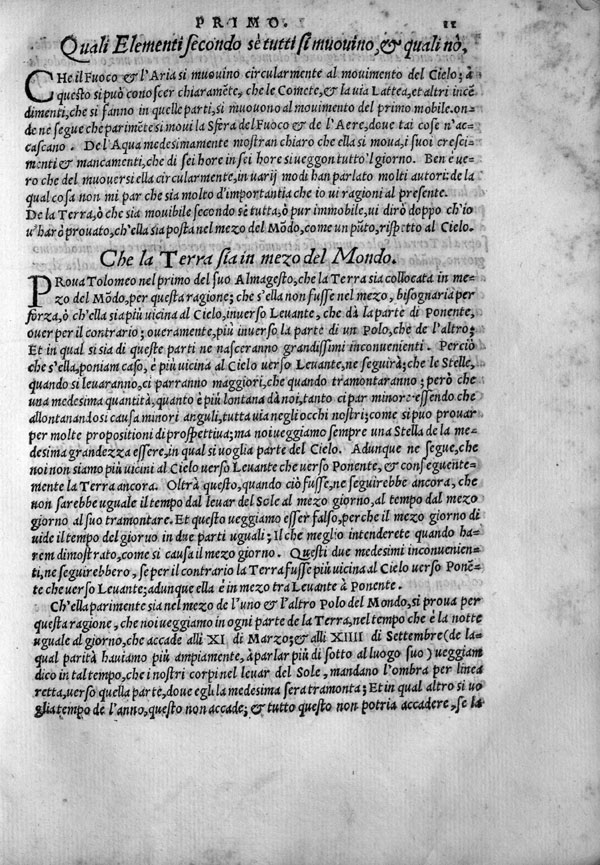 PRIMO. 11
Quali Elementi secondo sè tutti si muovino, & quali nò,
CHe il Fuoco & l'Aria si muovino circularmente al movimento del Cielo; à
questo si può conoscer chiaramēte, che le Comete, & la via Lattea, et altri incē
dimenti, che si fanno in quelle parti, si muovono al movimento del primo mobile. on-
de ne segue che parimēte si movi la Sfera del Fuoco & de l'Aere, dove tai cose n'ac-
cascano. De l'Aqua medesimamente mostran chiaro che ella si mova, i suoi cresci-
menti & mancamenti, che di sei hore in sei hore si veggon tutto'l giorno. Ben è ve-
ro che del muoversi ella circularmente, in varij modi han parlato molti autori: de la
qual cosa non mi par che sia molto d'importantia che io vi ragioni al presente.
De la Terra, ò che sia movibile secondo sè tutta, ò pur immobile, vi dirò doppo ch'io
v'harò provato, ch'ella sia posta nel mezo del Mōdo, come un pūto, rispetto al Cielo.
Che la Terra sia in mezo del Mondo.
PRova Tolomeo nel primo del suo Almagesto, che la Terra sia collocata in me-
zo del Mōdo, per questa ragione; che s'ella non fusse nel mezo, bisognaria per
forza, ò ch'ella sia più vicina al Cielo, inverso Levante, che dà la parte di Ponente,
over per il contrario; overamente, più inverso la parte di un Polo, che de l'altro;
Et in qual si sia di queste parti ne nasceranno grandissimi inconvenienti. Perciò
che s'ella, poniam caso, è più vicina al Cielo verso Levante, ne seguirà; che le Stelle,
quando si levaranno, ci parranno maggiori, che quando tramontaranno; però che
una medesima quantità, quanto è più lontana dà noi, tanto ci par minore essendo che
allontanandosi causa minori anguli, tutta via negli occhi nostri; come si puo provar
per molte propositioni di prospettiva; ma noi veggiamo sempre una Stella de la me-
desima grandezza essere, in qual si voglia parte del Cielo. Adunque ne segue, che
noi non siamo più vicini al Cielo verso Levante che verso Ponente, & conseguente-
mente la Terra ancora. Oltrà questo, quando ciò fusse, ne seguirebbe ancora, che
non sarebbe uguale il tempo dal levar del Sole al mezo giorno, al tempo dal mezo
giorno al suo tramontare. Et questo veggiamo esser falso, perche il mezo giorno di
vide il tempo del giorno in due parti uguali; Il che meglio intenderete quando ha-
rem dimostrato, come si causa il mezo giorno. Questi due medesimi inconvenien-
ti, ne seguirebbero, se per il contrario la Terra fusse più vicina al Cielo verso Ponē-
te che verso Levante; adunque ella è in mezo tra Levante à Ponente.
Ch'ella parimente sia nel mezo de l'uno & l'altro Polo del Mondo, si prova per
questa ragione, che noi veggiamo in ogni parte de la Terra, nel tempo che è la notte
uguale al giorno, che accade alli XI di Marzo; & alli XIIII di Settembre (de la-
qual parità haviamo più ampiamente, à parlar più di sotto al luogo suo) veggiam
dico in tal tempo, che i nostri corpi nel levar del Sole, mandano l'ombra per linea
retta, verso quella parte, dove egli la medesima sera tramonta; Et in qual altro si vo
glia tempo de l'anno, questo non accade; & tutto questo non potria accadere, se la